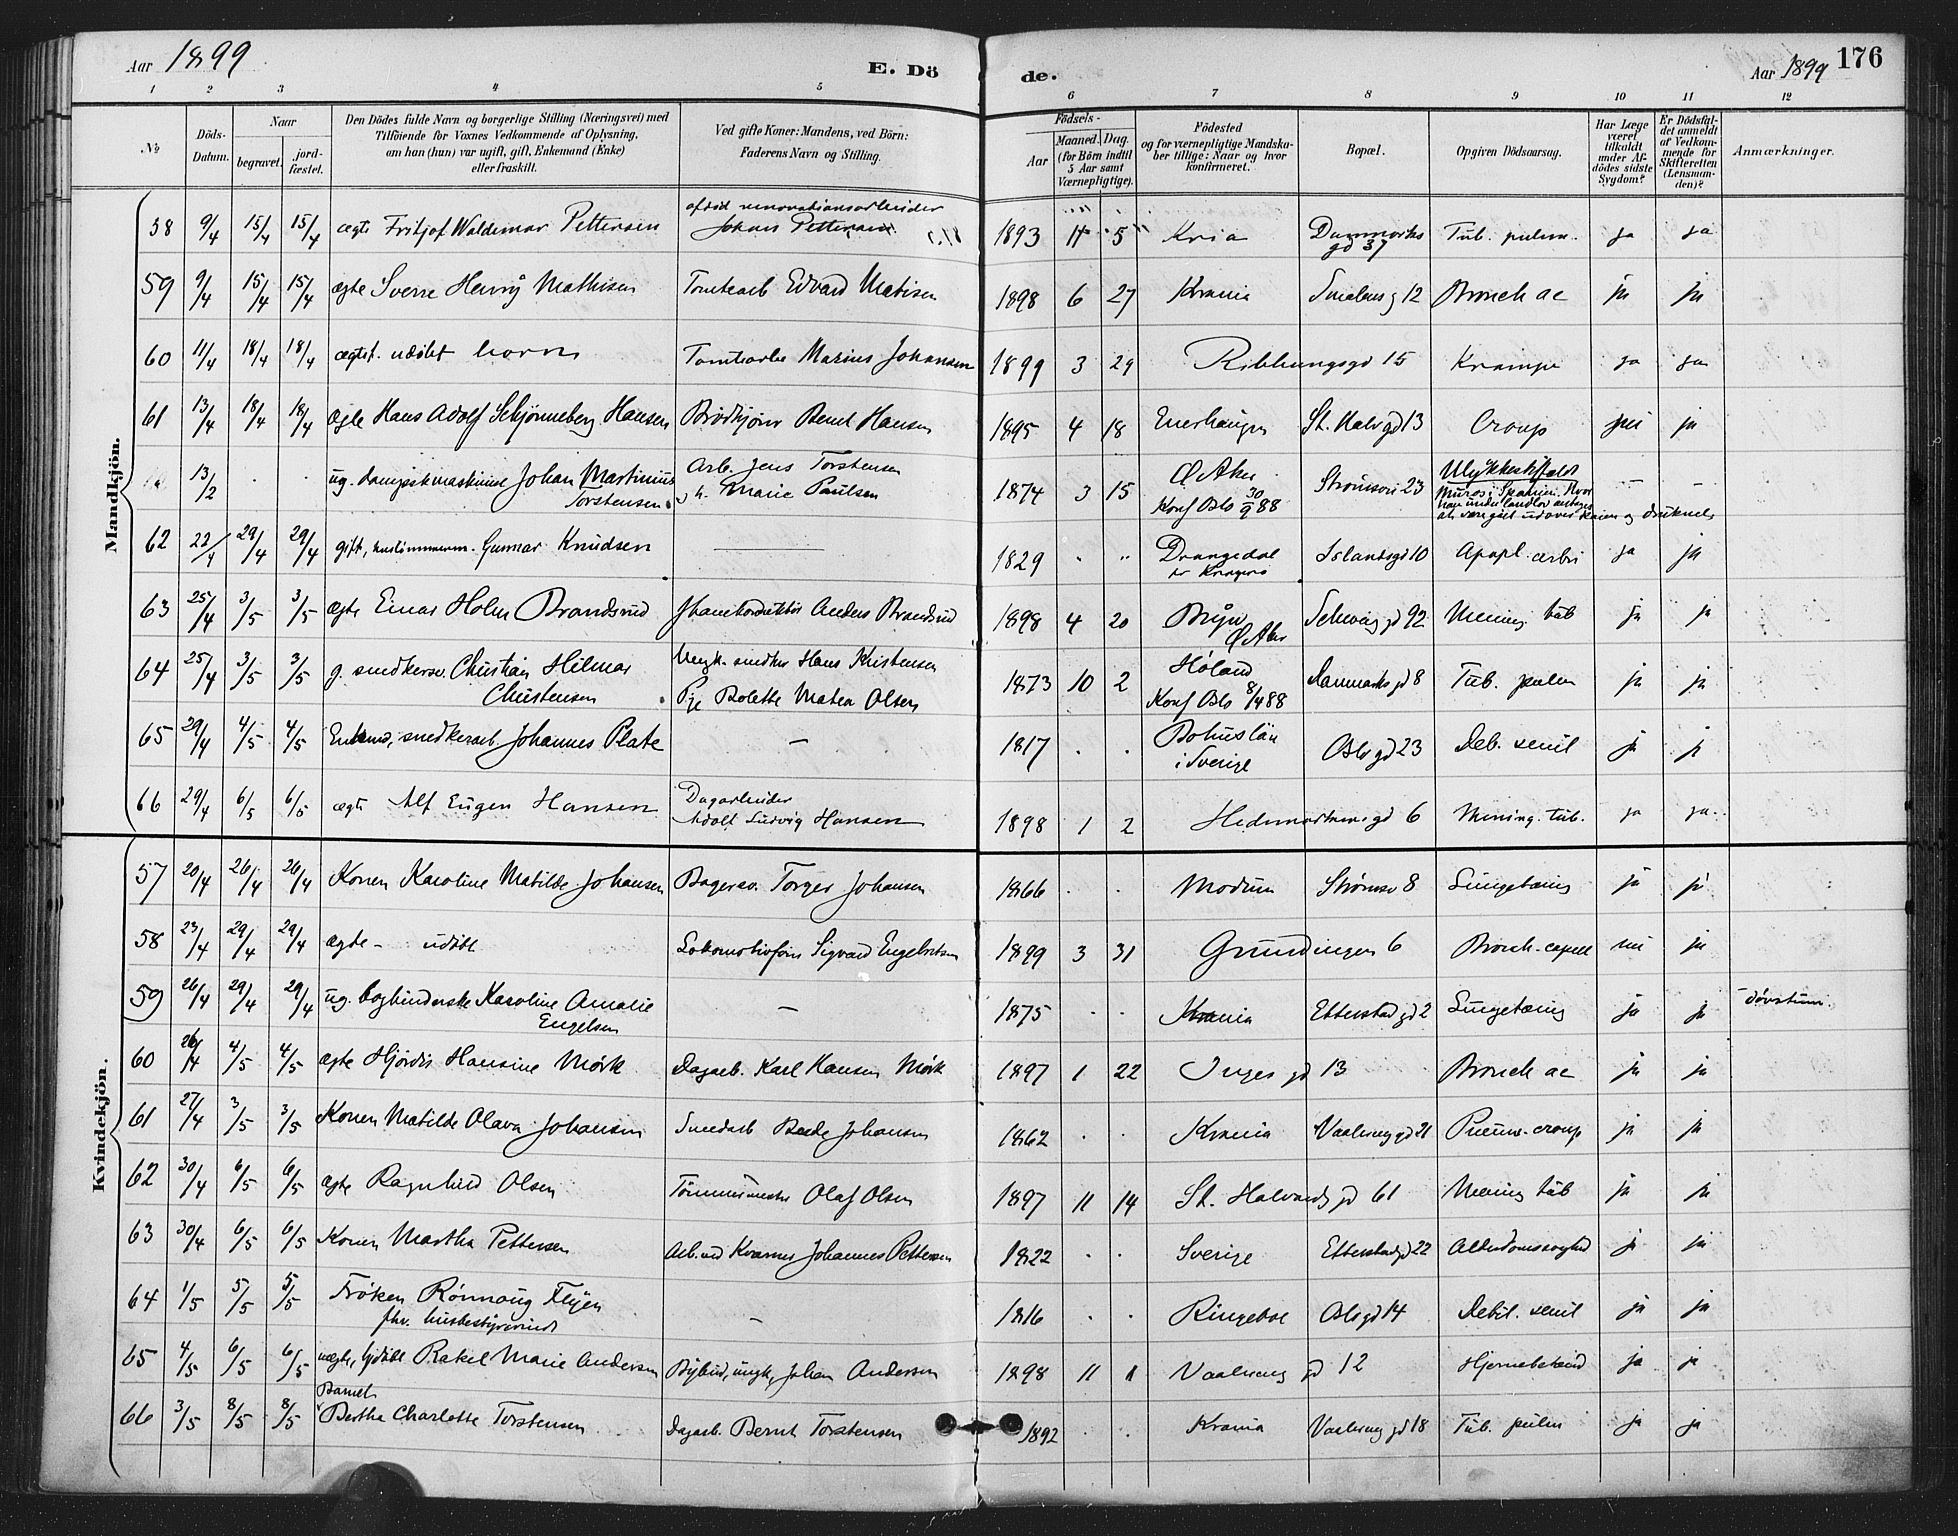 Aar 1899
E. Dö de.
Aar 1899
176
1 2 3 4 5 6 7 8 9 10 11 12
No
Döds-Datum.
Naar begravet. jordfæstet.
Den Dödes fulde Navn og borgerlige Stilling (Næringsvei) med Tilföiende for Voxnes Vedkommende af Oplysning, om han (hun) var ugift, gift, Enkemand (Enke) eller fraskilt.
Ved gifte Koner: Mandens, ved Börn: Faderens Navn og Stilling.
Födsels-
Aar
Maaned. Dag. (for Börn indtil 5 Aar samt Værnepligtige).
Födested og for værnepligtige Mandskaber tillige: Naar og hvor konfirmeret.
Bopæl.
Opgiven Dödsaarsag.
Har Læge været tilkaldt under Afdödes sidste Sygdom?
Er Dödsfaldet anmeldt af Vedkommende for Skifteretten (Lensmanden)?
Anmærkninger.
Mandkjön.
58 9/4 15/4 15/4 ægte Fritjof Waldemar Pettersen afdød renovationsarbeider Johan Pettersen 1893 5 Kria Danmarks gd 37 Tub. pulm. ja ja
59 9/4 15/4 15/4 ægte Sverre Henry Mathisen Tomtearb Edvard Matisen 1898 6 27 Krania Smalensg 12 Bronch ac ja ja
60 11/4 18/4 18/4 ægtef. udøbt barn Tomtearbe Marius Johansen 1899 3 29 Ribbungsgd 15 Krampe ja ja
61 13/4 18/4 18/4 ægte Hans Adolf Schjønneberg Hansen Brødkjører Bernt Hansen 1895 4 18 Enerhaugen St. Halvgd 13 Croup ja
13/2 . . ug. Johan Martinius Torstensen Arb. Jens Torstensen Marie Paulsen 1874 3 15 Ø Aker Konf Oslo 30/9 88 Strømsvei 23 Ulykkestilfældt – –
62 22/4 29/4 29/4 gift, hustømmerm. Gunnar Knudsen — 1829 . . Drangedal Kragerø Islandsgd 10 Apopl. cerbri ja ja
63 25/4 3/5 3/5 ægte Einar Holm Brandsrud Anders Brandsrud 1898 4 20 Bryn Ø Aker Schweig gd 92 Mening tub ja ja
64 25/4 3/5 3/5 g. snedkersv. Christian Hilmar Christensen Ungk. snedker Hans Kristensen Pge Bolette Matea Olsen 1873 10 2 Høland Konf Oslo 8/4 88 Danmarks gd 8 Tub. pulm ja ja
65 29/4 4/5 4/5 Enkemd, snedkerarb. Johannes Plate – 1817 . . Bohuslän i Sverige Oslo gd 23 Deb. senil ja ja
66 29/4 6/5 6/5 ægte Alf Eugen Hansen Dagarbeider Adolf Ludvig Hansen 1898 1 2 Hedemarkens gd 6 Mening. tub. ja ja
Kvindekjön.
57 20/4 26/4 26/4 Konen Karoline Matilde Johansen Bagersv. Torger Johansen 1866 . . Modum Strømsv 8 Lungetæring ja ja
58 23/4 29/4 29/4 ægte – udøbt Lokomotivfører Sigvard Engebretsen 1899 3 31 Grundingen 6 Bronch. capill nei ja
59 26/4 29/4 29/4 ug. bogbinderske Karoline Amalie Engelsen – 1875 . . Krania Etterstad gd 2 Lungetæring ja ja døvstum.
60 26/4 4/5 4/5 ægte Hjørdis Hansine Mørk Dagarb. Karl Hansen Mørk 1897 1 22 Inges gd 13 Bronch ac ja ja
61 27/4 3/5 3/5 Konen Matilde Olava Johansen Smedarb Johansen 1862 . . Krania Vaalreng gd 21 Pneum. croup ja ja
62 30/4 6/5 6/5 ægte Ragnhild Olsen Tømmermester Olaf Olsen 1897 11 14 St. Halvards gd 61 Mening tub ja ja
63 30/4 6/5 6/5 Konen Martha Pettersen Arb. ved Kværner Johannes Pettersen 1822 . . Sverige Etterstadgd 22 Alderdomssvaghed ja ja
64 1/5 5/5 5/5 Frøken Rønnaug Flyen fhv. husbestyrerinde – 1816 . . Ringebo Oslogd 14 Debil. senil ja ja
65 4/5 6/5 6/5 uægte, hjdøbt Rakel Marie Andersen Bybud, ungk, Johan Andersen 1898 11 1 Vaalreng gd 12 Hjernebetænd ja ja
66 3/5 8/5 8/5 Barnet Berthe Charlotte Torstensen Dagarb. Bernt Torstensen 1892 . . Krania Vaalreng gd 18 Tub. pulm ja ja